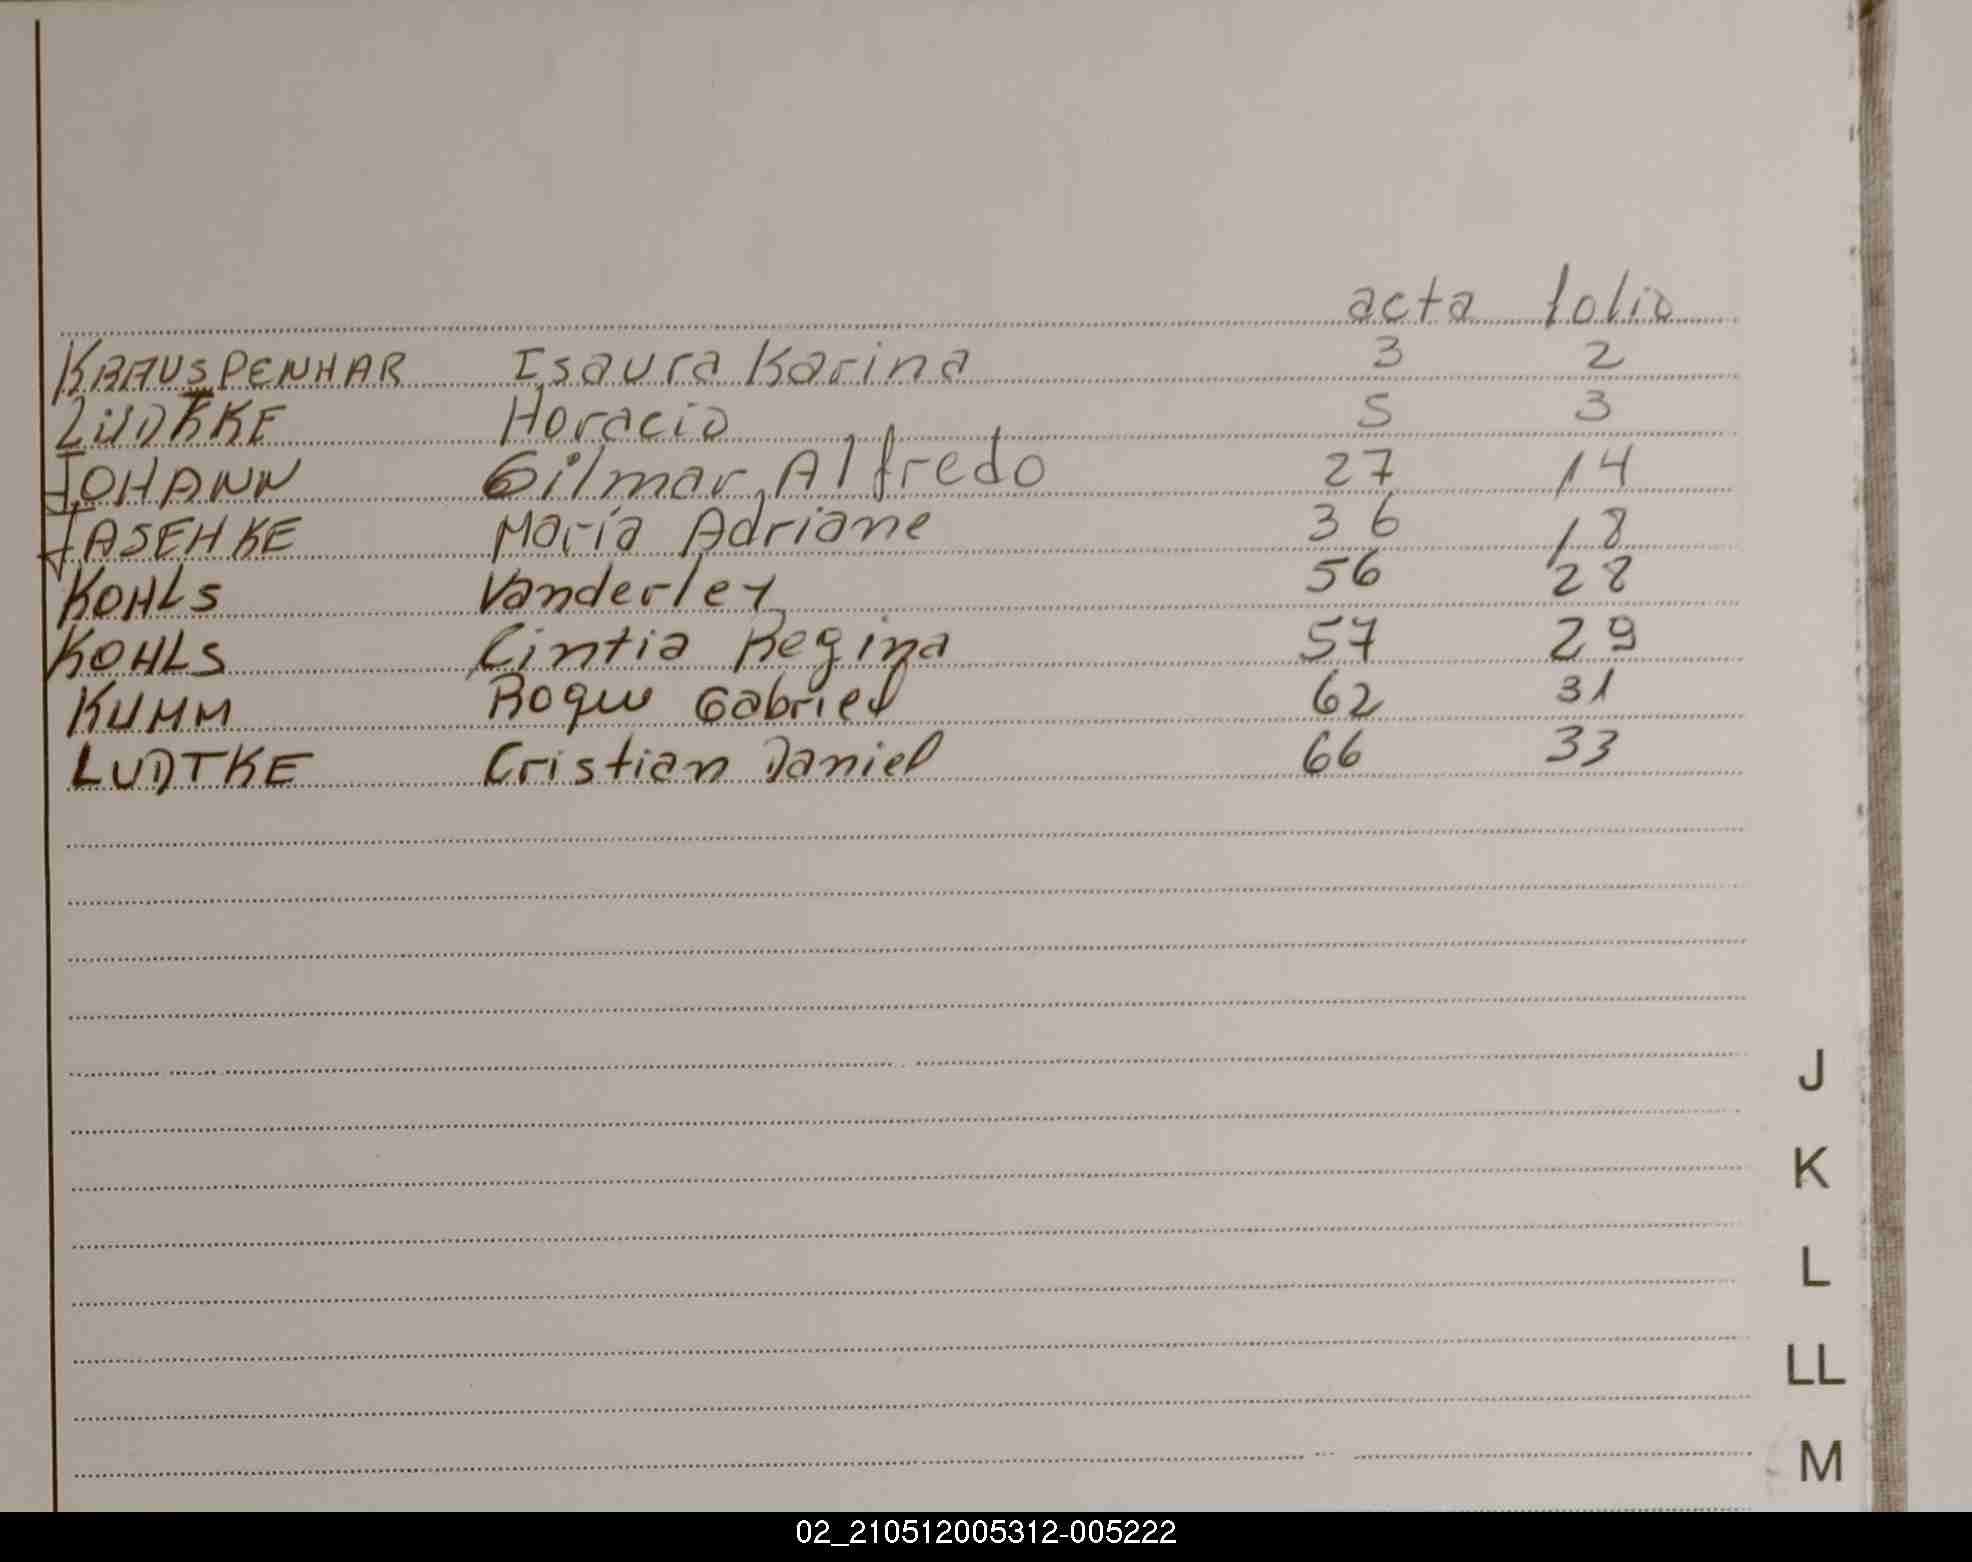 acta folio
KRAUSPENHAR Isaura Karina 3 2
LÜDKKE Horacio 5 3
JOHANN Gilmar Alfredo 27 14
JASEHKE María Adriane 36 18
KOHLS Vanderley 56 28
KOHLS Cintia Regina 57 29
KUMM Roque Gabriel 62 31
LUDTKE Cristian Daniel 66 33
J
K
L
LL
M
02_210512005312-005222